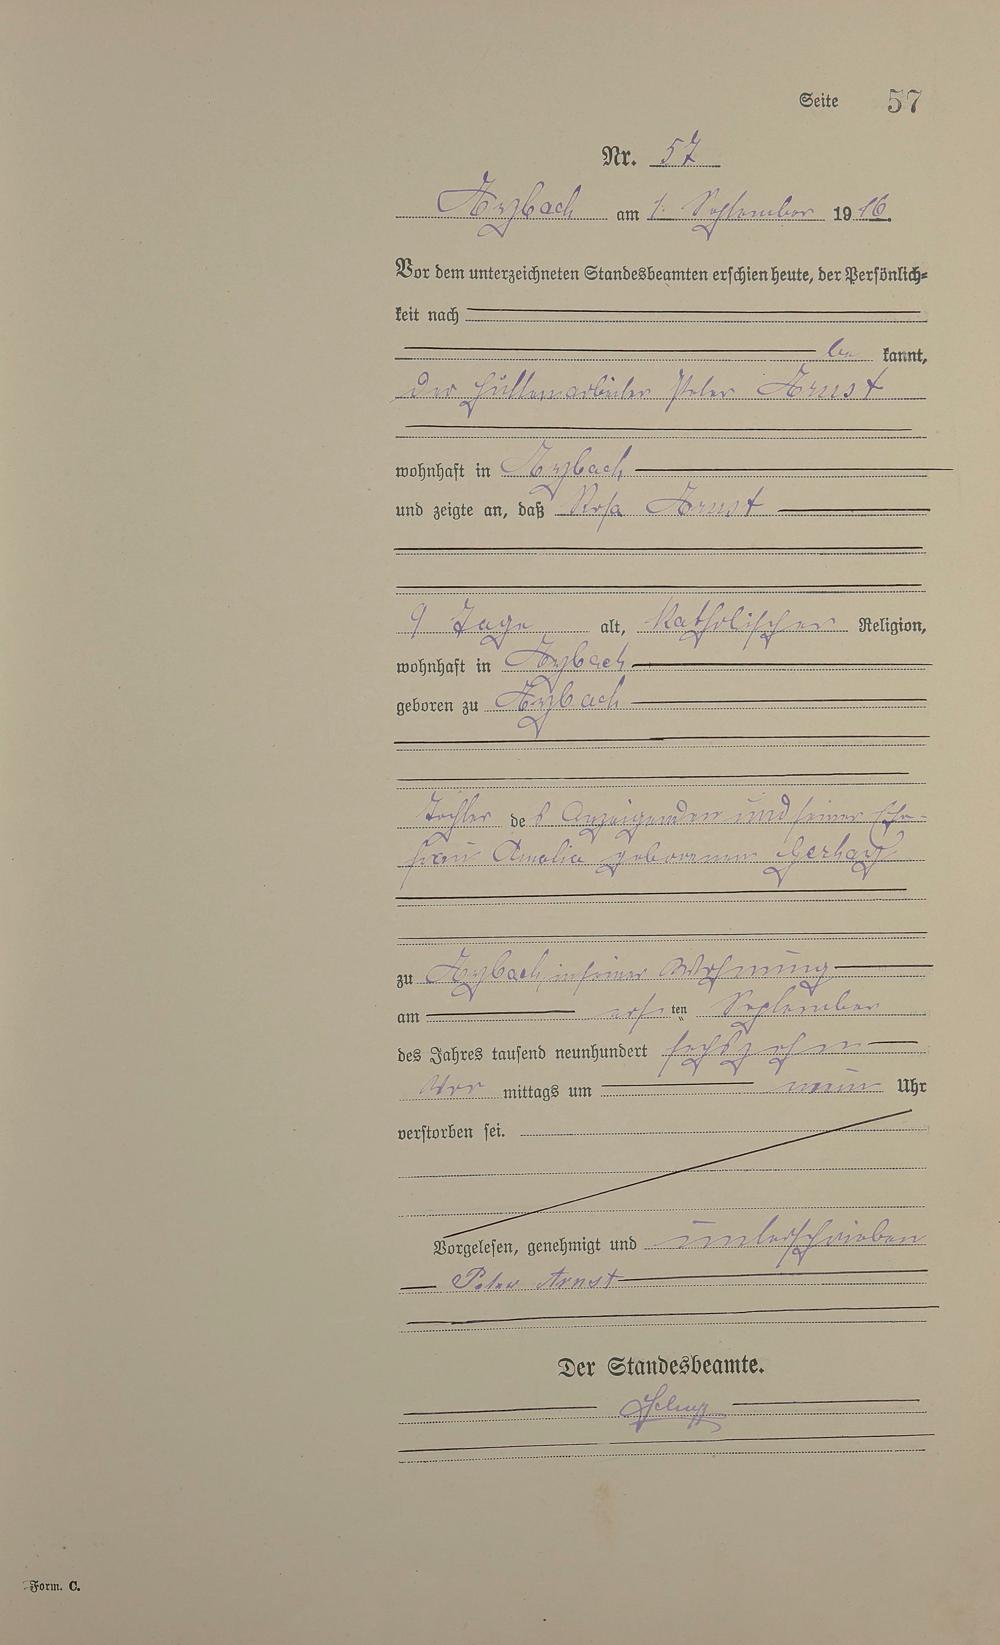 Seite 57
Nr. 57
Arzbach am 1. September 1916.
Vor dem unterzeichneten Standesbeamten erschien heute, der Persönlich-
keit nach
be kannt,
der Hüttenarbeiter Peter Arnst
wohnhaft in Arzbach
und zeigte an, daß Rosa Arnst
9 Tage alt, katholischer Religion,
wohnhaft in Arzbach
geboren zu Arzbach
Tochter des Anzeigenden und seiner Ehe-
frau Amalia geborenen
zu Arzbach, in seiner Wohnung
am ersten September
des Jahres tausend neunhundert sechszehn
Vor mittags um neun Uhr
verstorben sei.
Vorgelesen, genehmigt und unterschrieben
Peter Arnst
Der Standesbeamte.
Form. C.